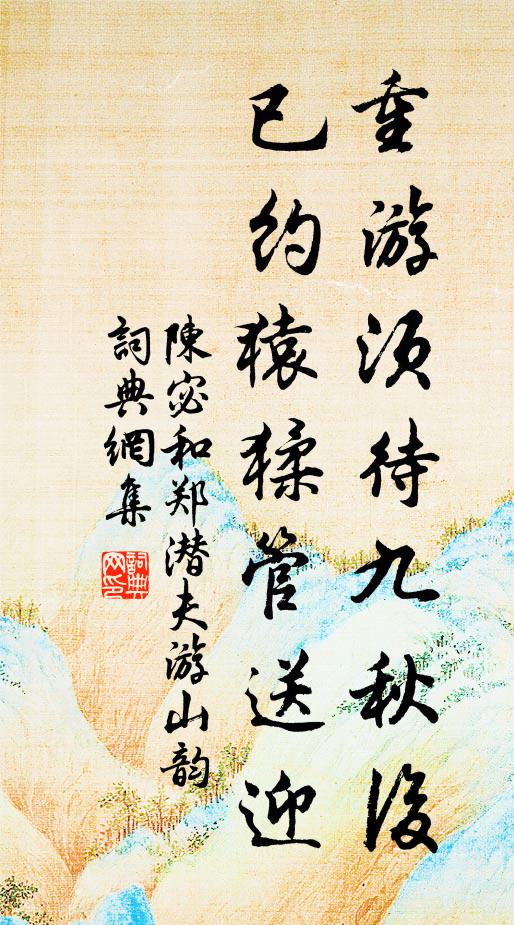 重游须待九秋後
已约猿猱管送迎
陳宓和郑潜夫游山韵
詞典網集
詞典